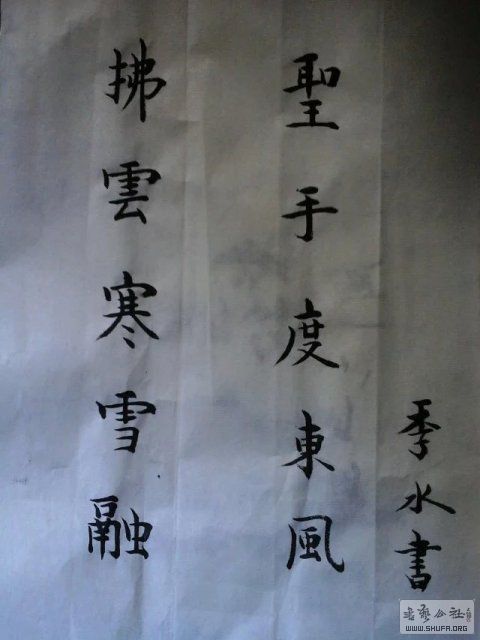 拂雲寒雪融
聖手度東風
季水書
WWW.SHUFA.ORG